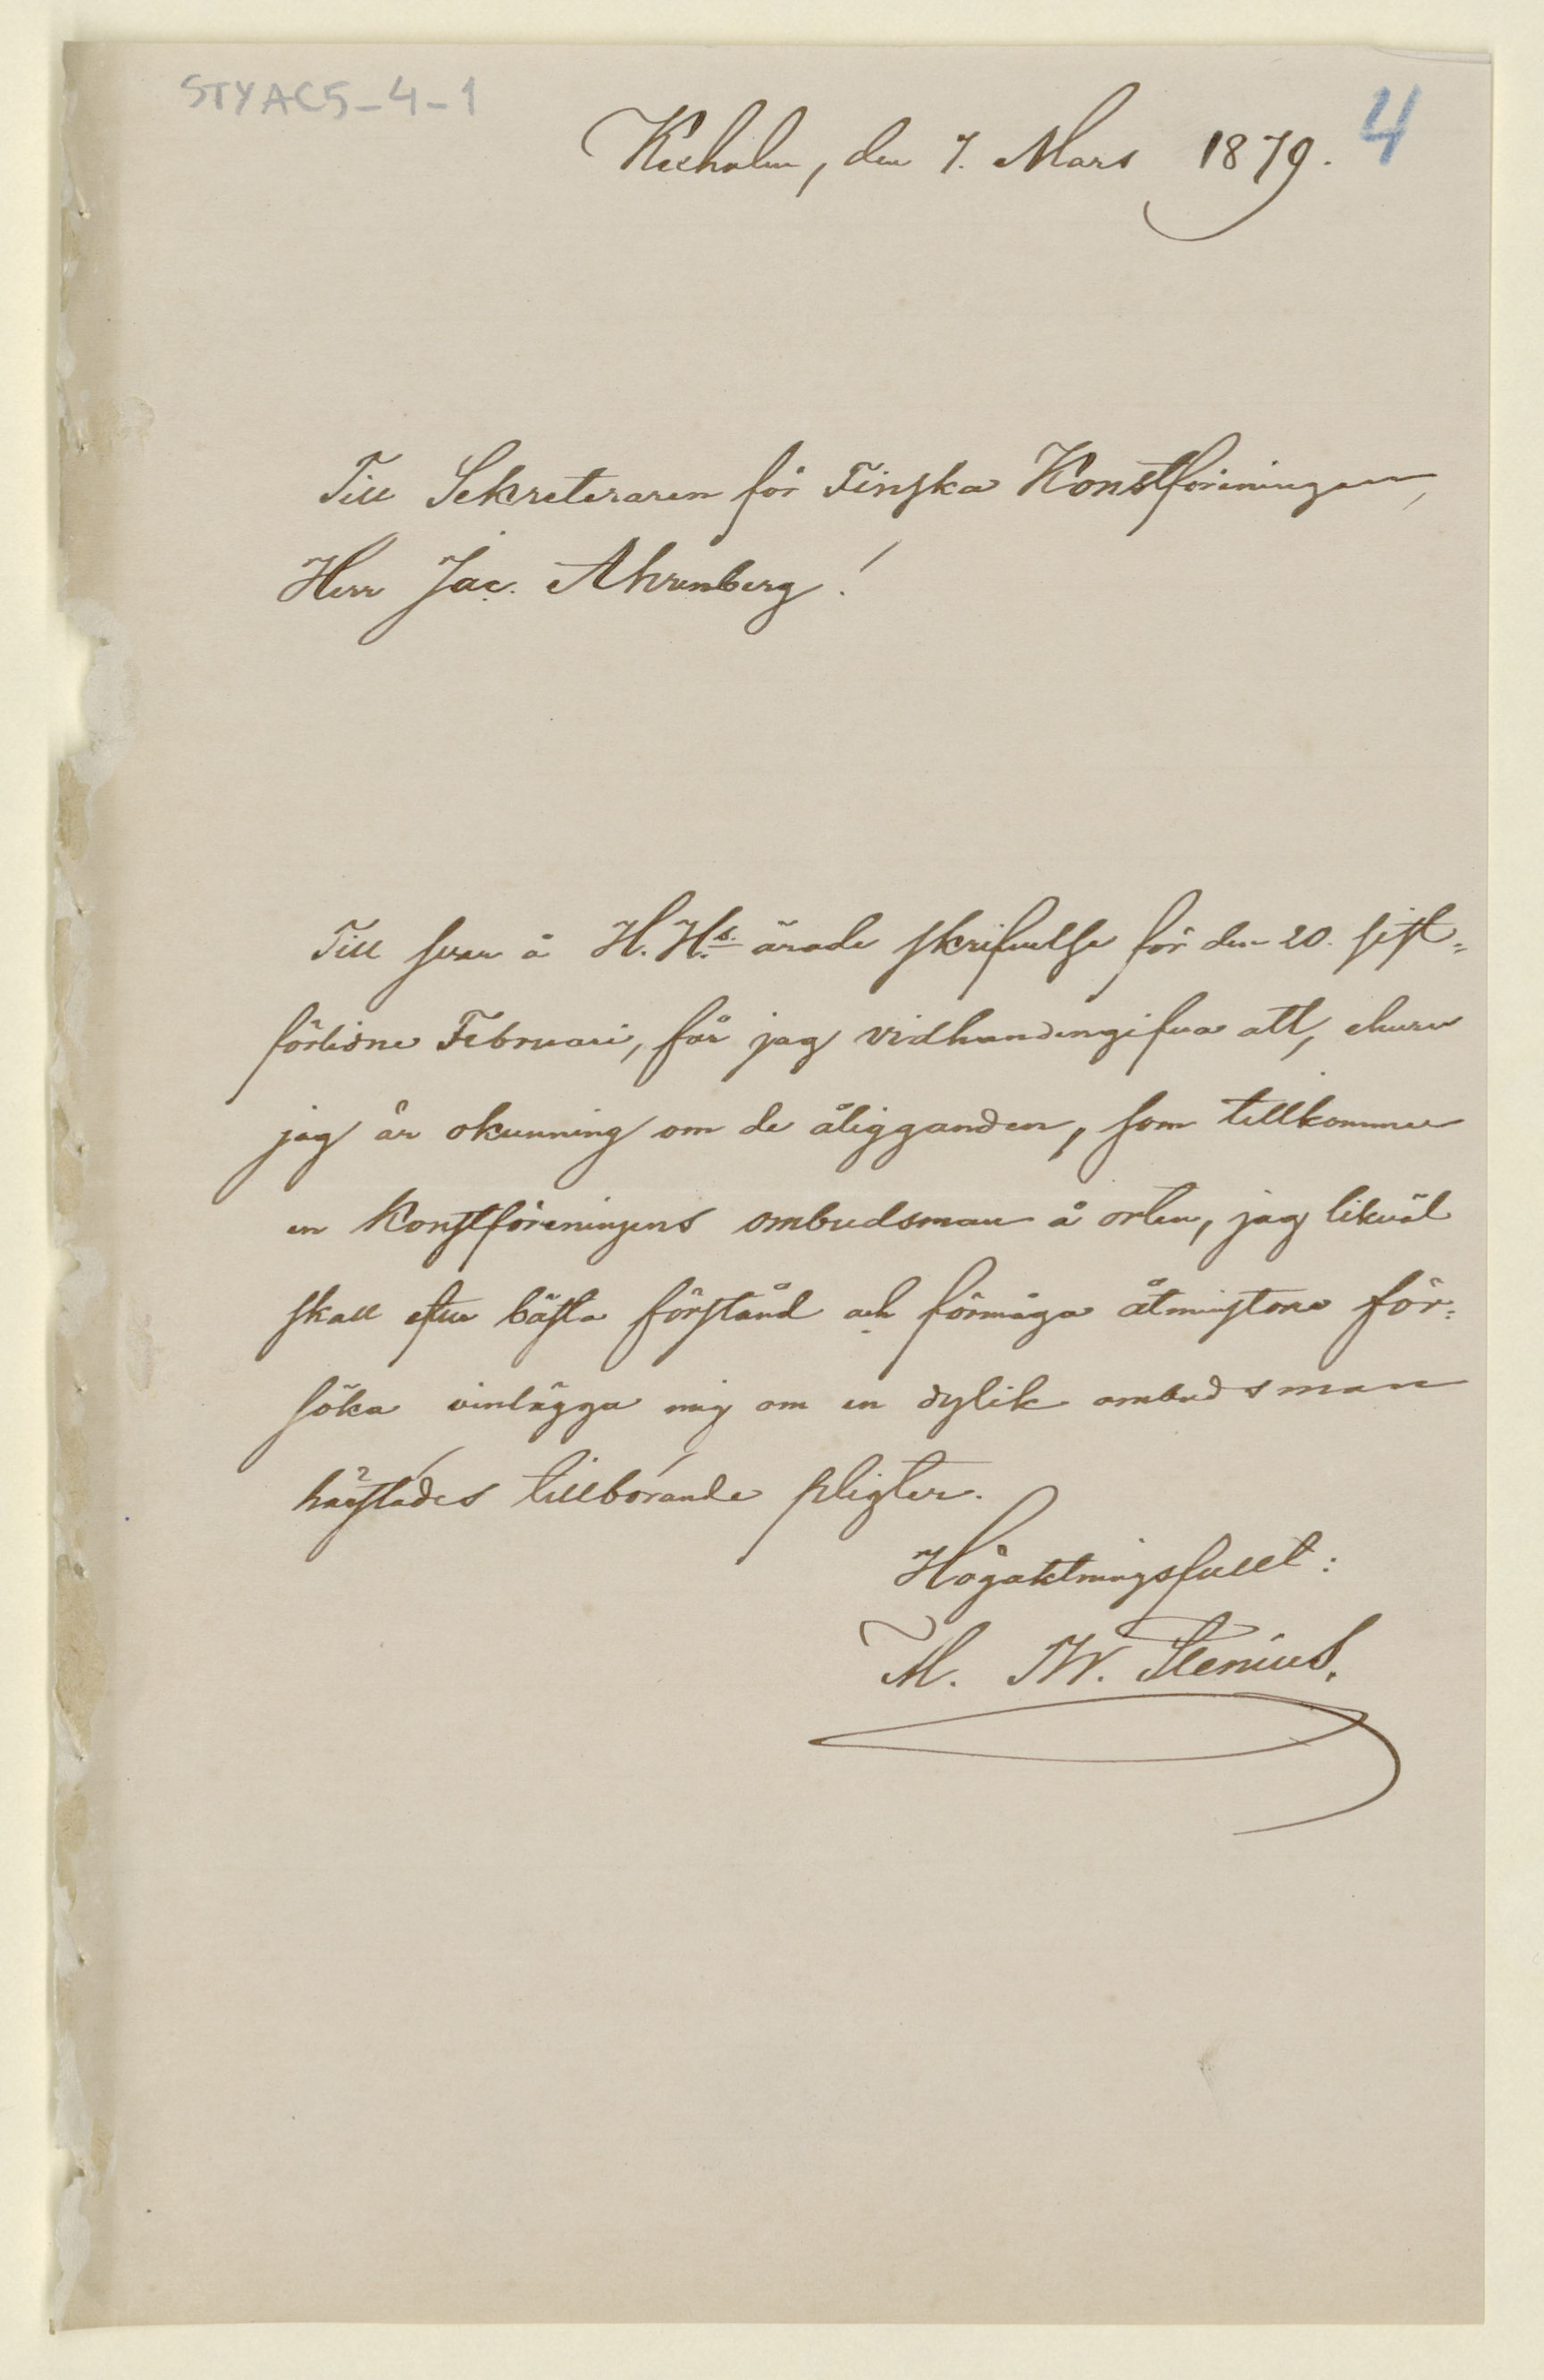 STYAC5-4-1
4
Kexholm, den 7. Mars 1879.
Till Sekreteraren för Finska Konstföreningen,
Herr Jac. Ahrenberg!
Till svar å H. H:s ärade skrifvelse för den 20. sist-
förlidne Februari, får jag vidhandengifva att, ehuru
jag är okunnig om de åligganden, som tillkommer
en Konstföreningens ombudsman å orten, jag likväl
skall efter bästa förstånd och förmåga åtminstone för-
söka vinlägga mig om en dylik ombudsman
härstädes tillhörande pligter.
Högaktningsfullt:
M. W. Stenius.